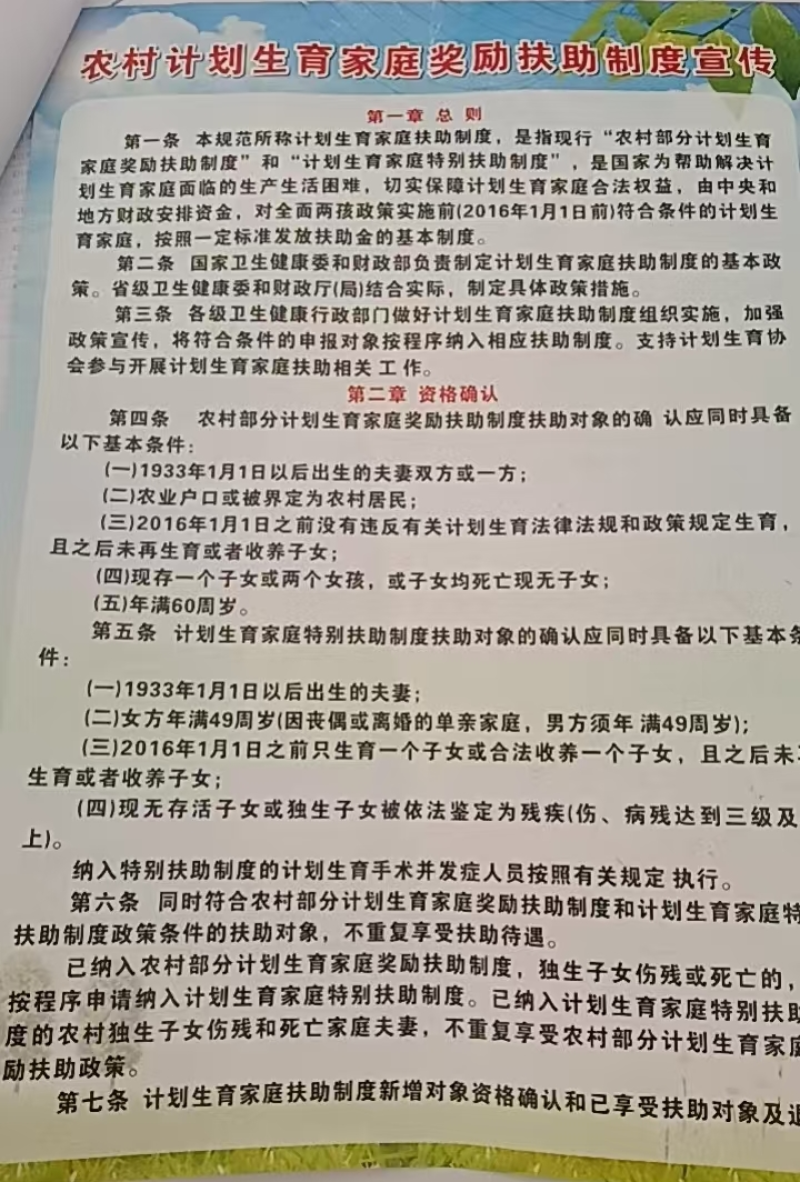 农村计划生育家庭奖励扶助制度宣传
第一章 总 则
第一条 本规范所称计划生育家庭扶助制度，是指现行“农村部分计划生育
家庭奖励扶助制度”和“计划生育家庭特别扶助制度”，是国家为帮助解决计
划生育家庭面临的生产生活困难，切实保障计划生育家庭合法权益，由中央和
地方财政安排资金，对全面两孩政策实施前(2016年1月1日前)符合条件的计划生
育家庭，按照一定标准发放扶助金的基本制度。
第二条 国家卫生健康委和财政部负责制定计划生育家庭扶助制度的基本政
策。省级卫生健康委和财政厅(局)结合实际，制定具体政策措施。
第三条 各级卫生健康行政部门做好计划生育家庭扶助制度组织实施，加强
政策宣传，将符合条件的申报对象按程序纳入相应扶助制度。支持计划生育协
会参与开展计划生育家庭扶助相关 工 作。
第二章 资格确认
第四条 农村部分计划生育家庭奖励扶助制度扶助对象的确 认应同时具备
以下基本条件：
(一)1933年1月1日以后出生的夫妻双方或一方；
(二)农业户口或被界定为农村居民；
(三)2016年1月1日之前没有违反有关计划生育法律法规和政策规定生育，
且之后未再生育或者收养子女；
(四)现存一个子女或两个女孩，或子女均死亡现无子女；
(五)年满60周岁。
第五条 计划生育家庭特别扶助制度扶助对象的确认应同时具备以下基本条
件：
(一)1933年1月1日以后出生的夫妻；
(二)女方年满49周岁(因丧偶或离婚的单亲家庭，男方须年 满49周岁)；
(三)2016年1月1日之前只生育一个子女或合法收养一个子女，且之后未
生育或者收养子女；
(四)现无存活子女或独生子女被依法鉴定为残疾(伤、病残达到三级及
上)。
纳入特别扶助制度的计划生育手术并发症人员按照有关规定 执行。
第六条 同时符合农村部分计划生育家庭奖励扶助制度和计划生育家庭特
扶助制度政策条件的扶助对象，不重复享受扶助待遇。
已纳入农村部分计划生育家庭奖励扶助制度，独生子女伤残或死亡的，
按程序申请纳入计划生育家庭特别扶助制度。已纳入计划生育家庭特别扶助
度的农村独生子女伤残和死亡家庭夫妻，不重复享受农村部分计划生育家庭
励扶助政策。
第七条 计划生育家庭扶助制度新增对象资格确认和已享受扶助对象及退